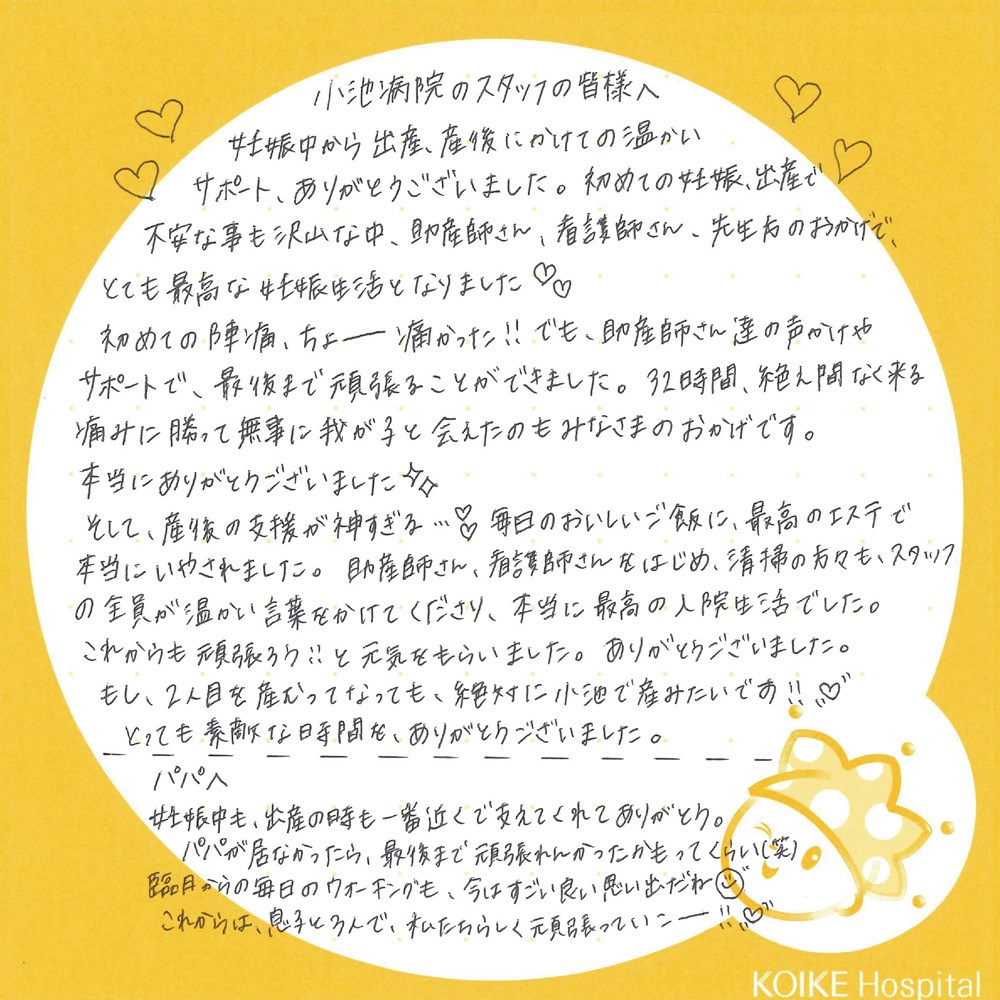 小池病院のスタッフの皆様へ
妊娠中から出産、産後にかけての温かい
サポート、ありがとうございました。初めての妊娠、出産で
不安な事も沢山な中、助産師さん、看護師さん、先生方のおかげで、
とても最高な妊娠生活となりました♡♡
初めての陣痛、ちょー痛かった!!でも、助産師さん達の声かけや
サポートで、最後まで頑張ることができました。32時間、絶え間なく来る
痛みに勝って無事に我が子と会えたのもみなさまのおかげです。
本当にありがとうございました✧✧
そして、産後の支援が神すぎる…♡♡毎日のおいしいご飯に、最高のエステで
本当にいやされました。助産師さん、看護師さんをはじめ、清掃の方々も、スタッフ
の全員が温かい言葉をかけてくださり、本当に最高の入院生活でした。
これからも頑張ろう!!と元気をもらいました。ありがとうございました。
もし、2人目を産むってなっても、絶対に小池で産みたいです!!♡
とっても素敵な時間を、ありがとうございました。
パパへ
妊娠中も、出産の時も一番近くで支えてくれてありがとう。
パパが居なかったら、最後まで頑張れんかったかもってくらい(笑)
臨月からの毎日のウォーキングも、今はすごい良い思い出だね☺
これからは、息子と3人で、私たちらしく頑張っていこー!!♡
KOIKE Hospital